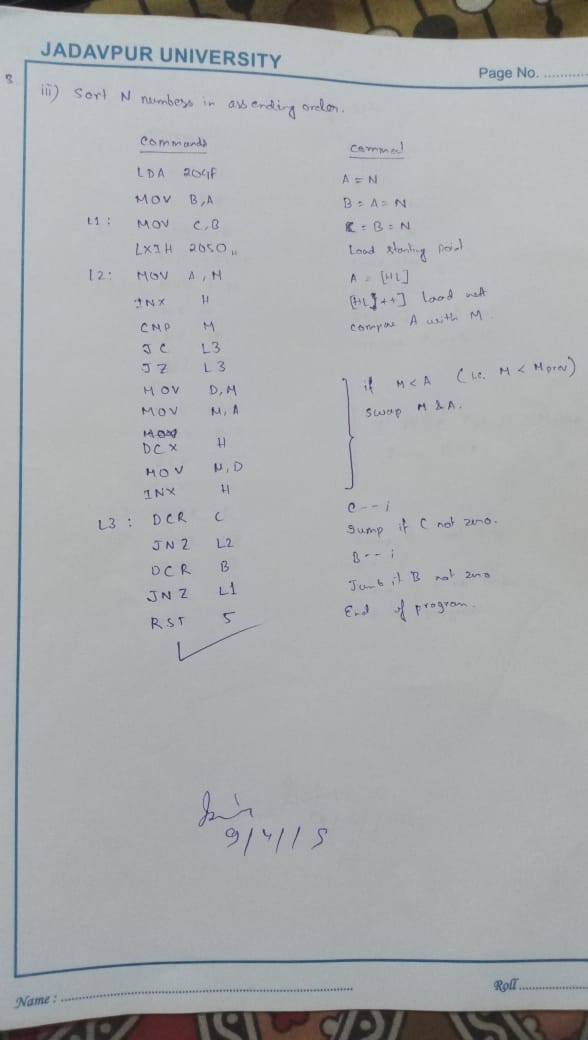 JADAVPUR UNIVERSITY
Page No. ............
iii) Sort N numbers in assending order.
Commands Comment
LDA 204F A = N
MOV B,A B = A = N
L1 : MOV C,B C = B = N
LXI H 2050 Load starting point
L2 : MOV A,M A = [HL]
INX H [HL]++] load next
CMP M compare A with M.
JC L3
JZ L3
MOV D,M if M < A (i.e. M < Mprev)
MOV M,A swap M & A.
DCX H
MOV M,D
INX H
L3 : DCR C C--;
JNZ L2 Jump if C not zero.
DCR B B--;
JNZ L1 Jumb if B not zero
RST 5 End of program.
Name : ............
Roll ............